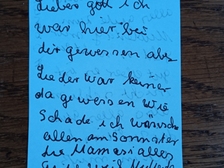 Liebes gott ich
war hier bei
dir gewessen aber
Leider war keiner
da geweissen wie
Schade ich wünsche
allen am Sonnster
die Mamas alles